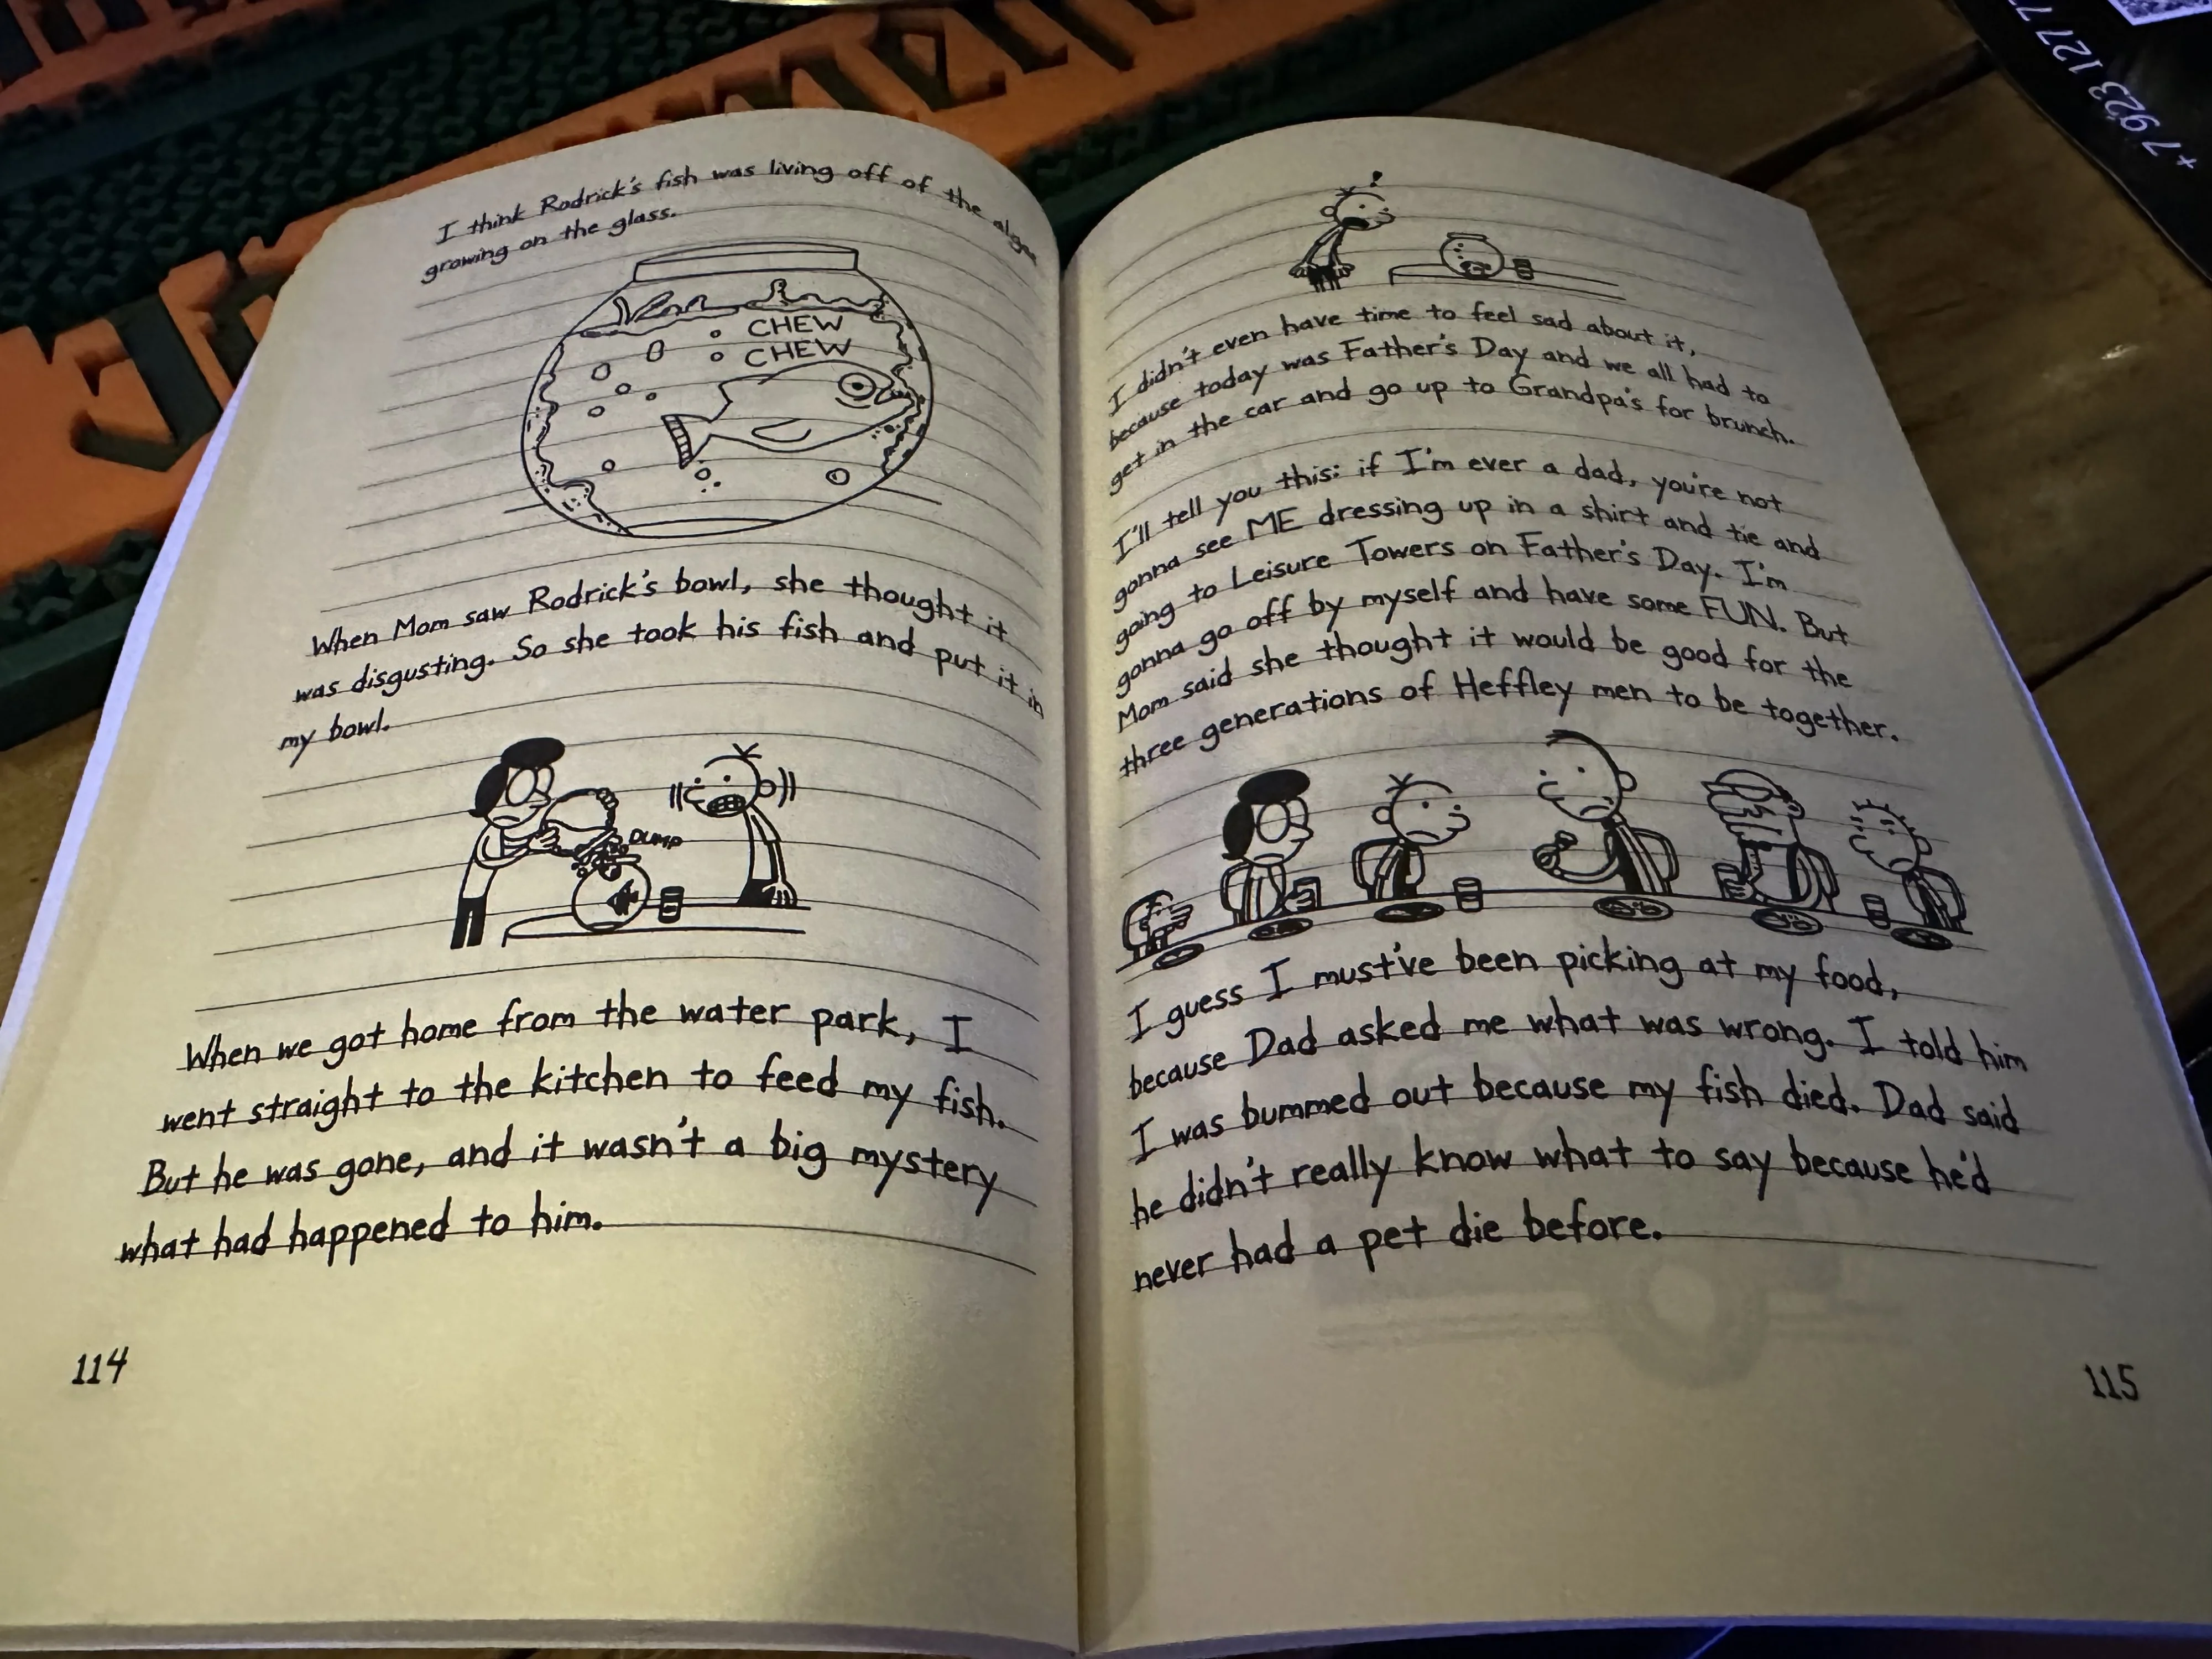 I think Rodrick's fish was living off of the algae
growing on the glass.
CHEW
CHEW
When Mom saw Rodrick's bowl, she thought it
was disgusting. So she took his fish and put it in
my bowl.
DUMP
When we got home from the water park, I
went straight to the kitchen to feed my fish.
But he was gone, and it wasn't a big mystery
what had happened to him.
114
I didn't even have time to feel sad about it,
because today was Father's Day and we all had to
get in the car and go up to Grandpa's for brunch.
I'll tell you this: if I'm ever a dad, you're not
gonna see ME dressing up in a shirt and tie and
going to Leisure Towers on Father's Day. I'm
gonna go off by myself and have some FUN. But
Mom said she thought it would be good for the
three generations of Heffley men to be together.
I guess I must've been picking at my food,
because Dad asked me what was wrong. I told him
I was bummed out because my fish died. Dad said
he didn't really know what to say because he'd
never had a pet die before.
115
+7 923 127 7